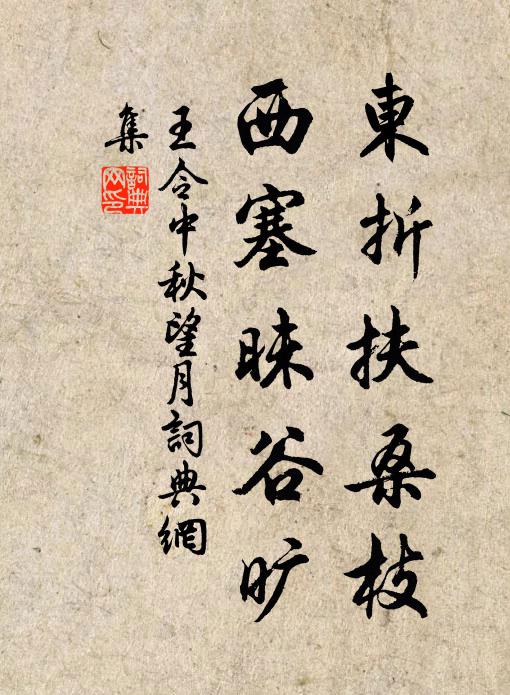 東折扶桑枝
西塞昧谷旷
王令中秋望月詞典網
集
詞典网印